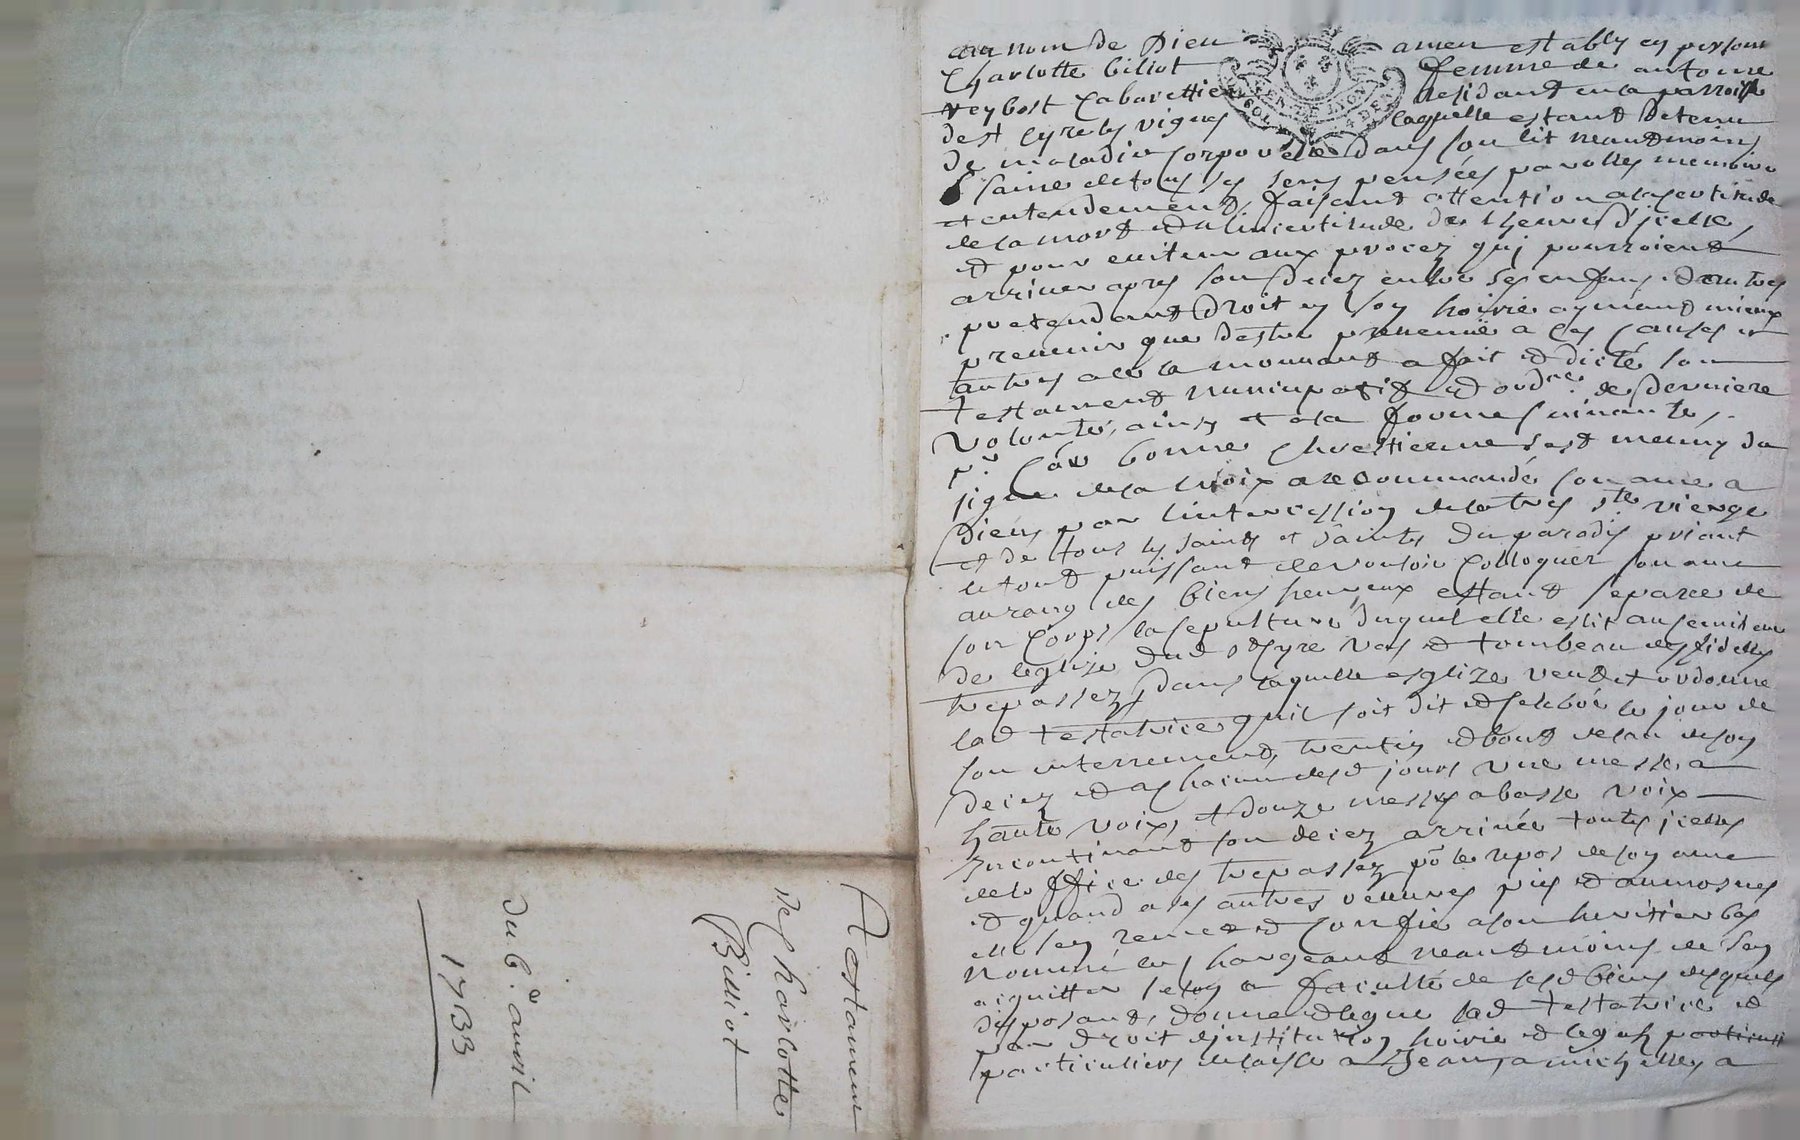 au nom de Dieu amen establÿ en personne
Charlotte billiot femme de antoine
veybost Cabarettier residant en la parroisse
de st Cyre les vignes laquelle estant detenu
de maladie corporelle dans son lit neantmoins
saine de tous ses sens pensées parolles memoire
et entendement, faisant attention a la certitude
de la mort et a lincertitude de lheure d'jcelle,
et pour eviter aux procez quj pourroient
arriver apres son decez entre ses enfans et autres
pretendant droit en son hoirie aymant mieux
prevenir que destre prevenuë a ces Causes et
autres a ce la mouvant a fait et dicté son
testament nuncupatif et ordce de derniere
volonté, ainsy et a la forme suivante,
pr Côe bonne Chrestienne sest muny du
signe de la croix a recommandé son ame a
Dieu par lintercession de la tres ste vierge
et de tous les saints et saintes du paradis priant
le tout puissant de vouloir Colloquer son ame
au rang des biens heureux estant separée de
son Corps la sepulture duquel elle eslit au semitiere
de leglize dud st Cyre vas et tombeau des fidelles
trepassez, dans laquelle esglize veut et ordonne
lad testatrice quil soit dit et celebré le jour de
son enterrement, trentin et bout de lan de son
decez et a chacun desd jours une messe a
haute voix, et douze messes a basse voix
Incontinant son decez arrivée toutes jcelles
de loffice des trepassez pr le repos de son ame
et quand a ses autres œuvres pies et aumosnes
elle sen remet et confie a son heritier bas
nommé en chargeant neantmoins de sen
acquitter selon la faculté de sesd biens desquels
disposant, donne et legue lad testatrice et
par droit djnstitution hoirie et legat
particuliers delaisse a Jean, a michelle, a
Testament
de Charlotte
Billiot
du 6e auvril
1733